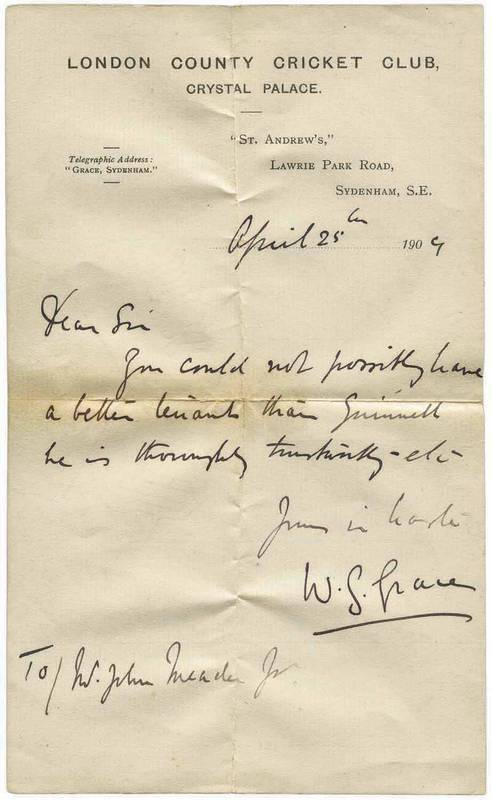 LONDON COUNTY CRICKET CLUB,
CRYSTAL PALACE.
"ST. ANDREW'S,"
Telegraphic Address:
"GRACE, SYDENHAM."
LAWRIE PARK ROAD,
SYDENHAM, S.E.
April 25th 1904
Dear Sir
You could not possibly have
a better tenant than
he is thoroughly trustworthy - etc
Yours in haste
W. G. Grace
To/ Mr. John Meader Jr